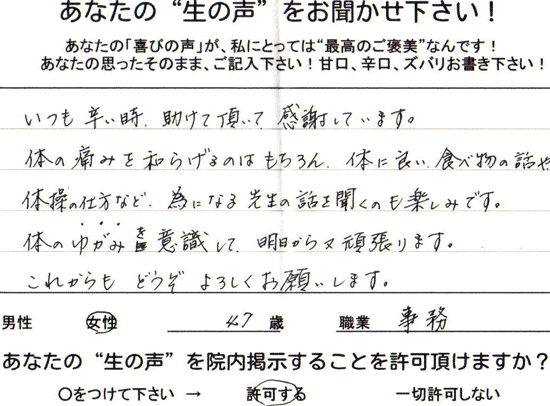 あなたの“生の声”をお聞かせ下さい！
あなたの「喜びの声」が、私にとっては“最高のご褒美”なんです！
あなたの思ったそのまま、ご記入下さい！甘口、辛口、ズバリお書き下さい！
いつも辛い時、助けて頂いて感謝しています。
体の痛みを和らげるのはもちろん、体に良い、食べ物の話や
体操の仕方など、為になる先生の話を聞くのも楽しみです。
体のゆがみを意識して、明日から又頑張ります。
これからもどうぞよろしくお願いします。
男性 女性 47歳 職業 事務
あなたの“生の声”を院内掲示することを許可頂けますか？
○をつけて下さい → 許可する 一切許可しない